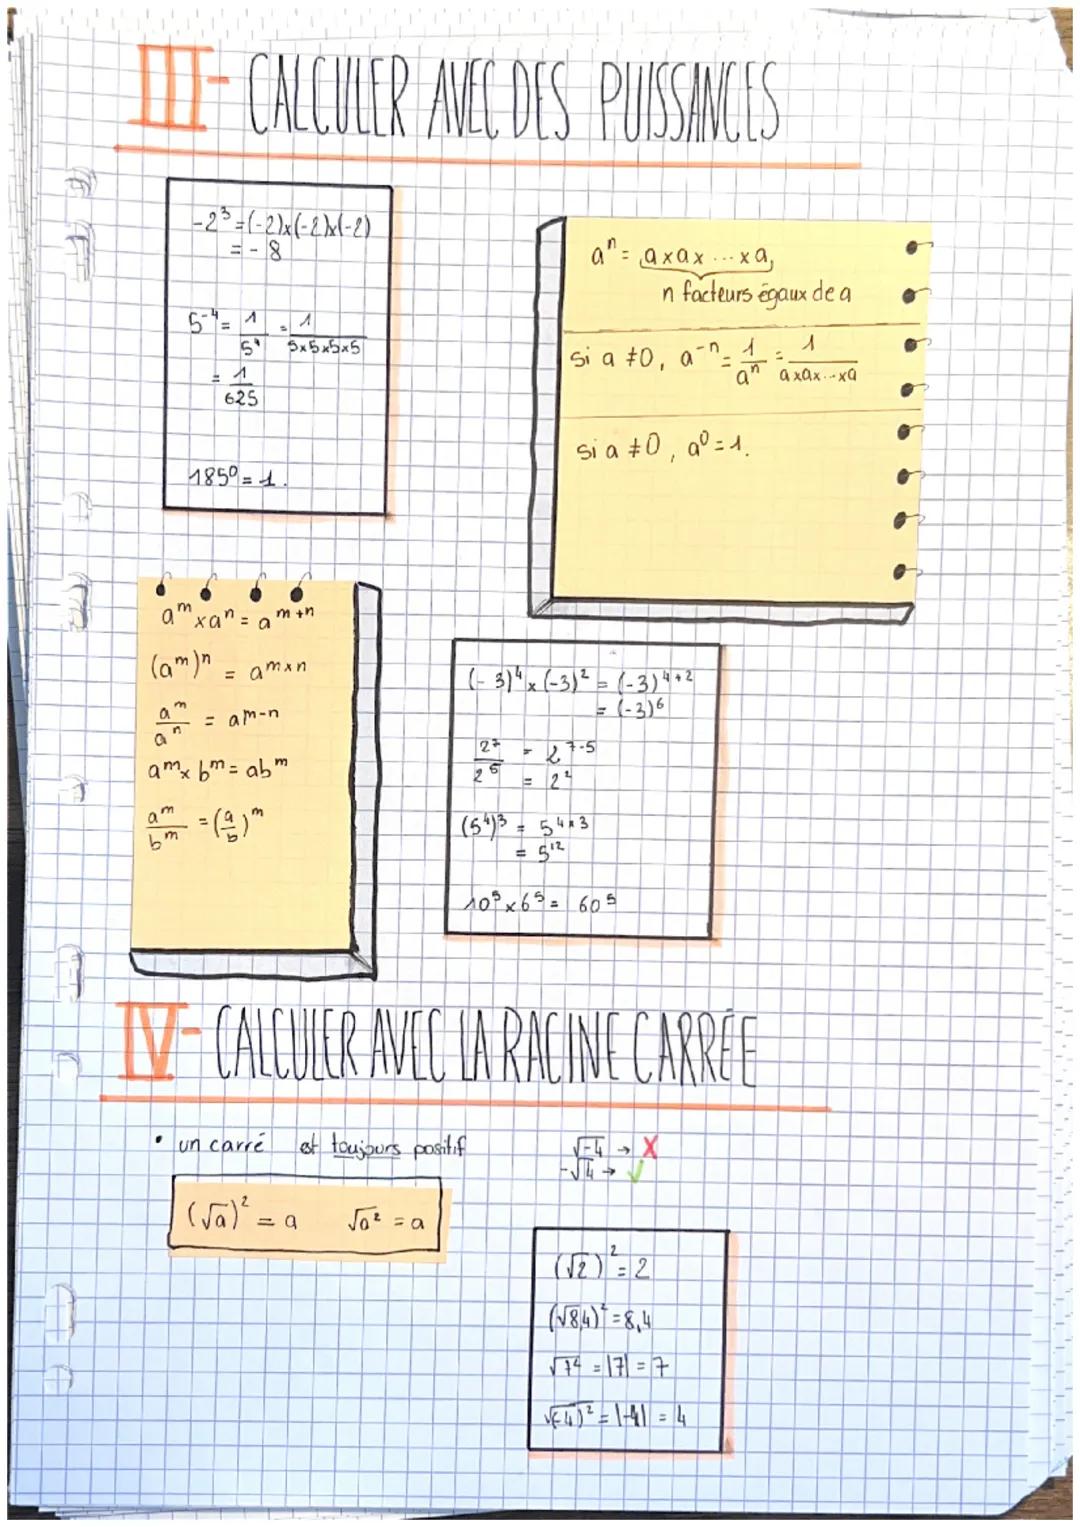 III- CALCULER AVEC DES PUISSANCES
-2³ = (-2)x(-2)x(-2)
= - 8
5⁻⁴ = 1/5⁴ = 1/5x5x5x5
= 1/625
185⁰ = 1.
aⁿ = a x a x ... x a,
n facteurs égaux de a
si a ≠ 0, a⁻ⁿ = 1/aⁿ = 1/a x a x ... x a
si a ≠ 0, a⁰ = 1.
aᵐ x aⁿ = aᵐ⁺ⁿ
(aᵐ)ⁿ = aᵐˣⁿ
aᵐ/aⁿ = aᵐ⁻ⁿ
aᵐ x bᵐ = abᵐ
aᵐ/bᵐ = (a/b)ᵐ
(-3)⁴ x (-3)² = (-3)⁴⁺²
= (-3)⁶
2⁷/2⁵ = 2⁷⁻⁵
= 2²
(5⁴)³ = 5⁴ˣ³
= 5¹²
10⁵ x 6⁵ = 60⁵
IV- CALCULER AVEC LA RACINE CARRÉE
• un carré est toujours positif
√-4 → X
-√4 → ✓
(√a)² = a √a² = a
(√2)² = 2
(√8,4)² = 8,4
√7² = |7| = 7
√(-4)² = |-4| = 4